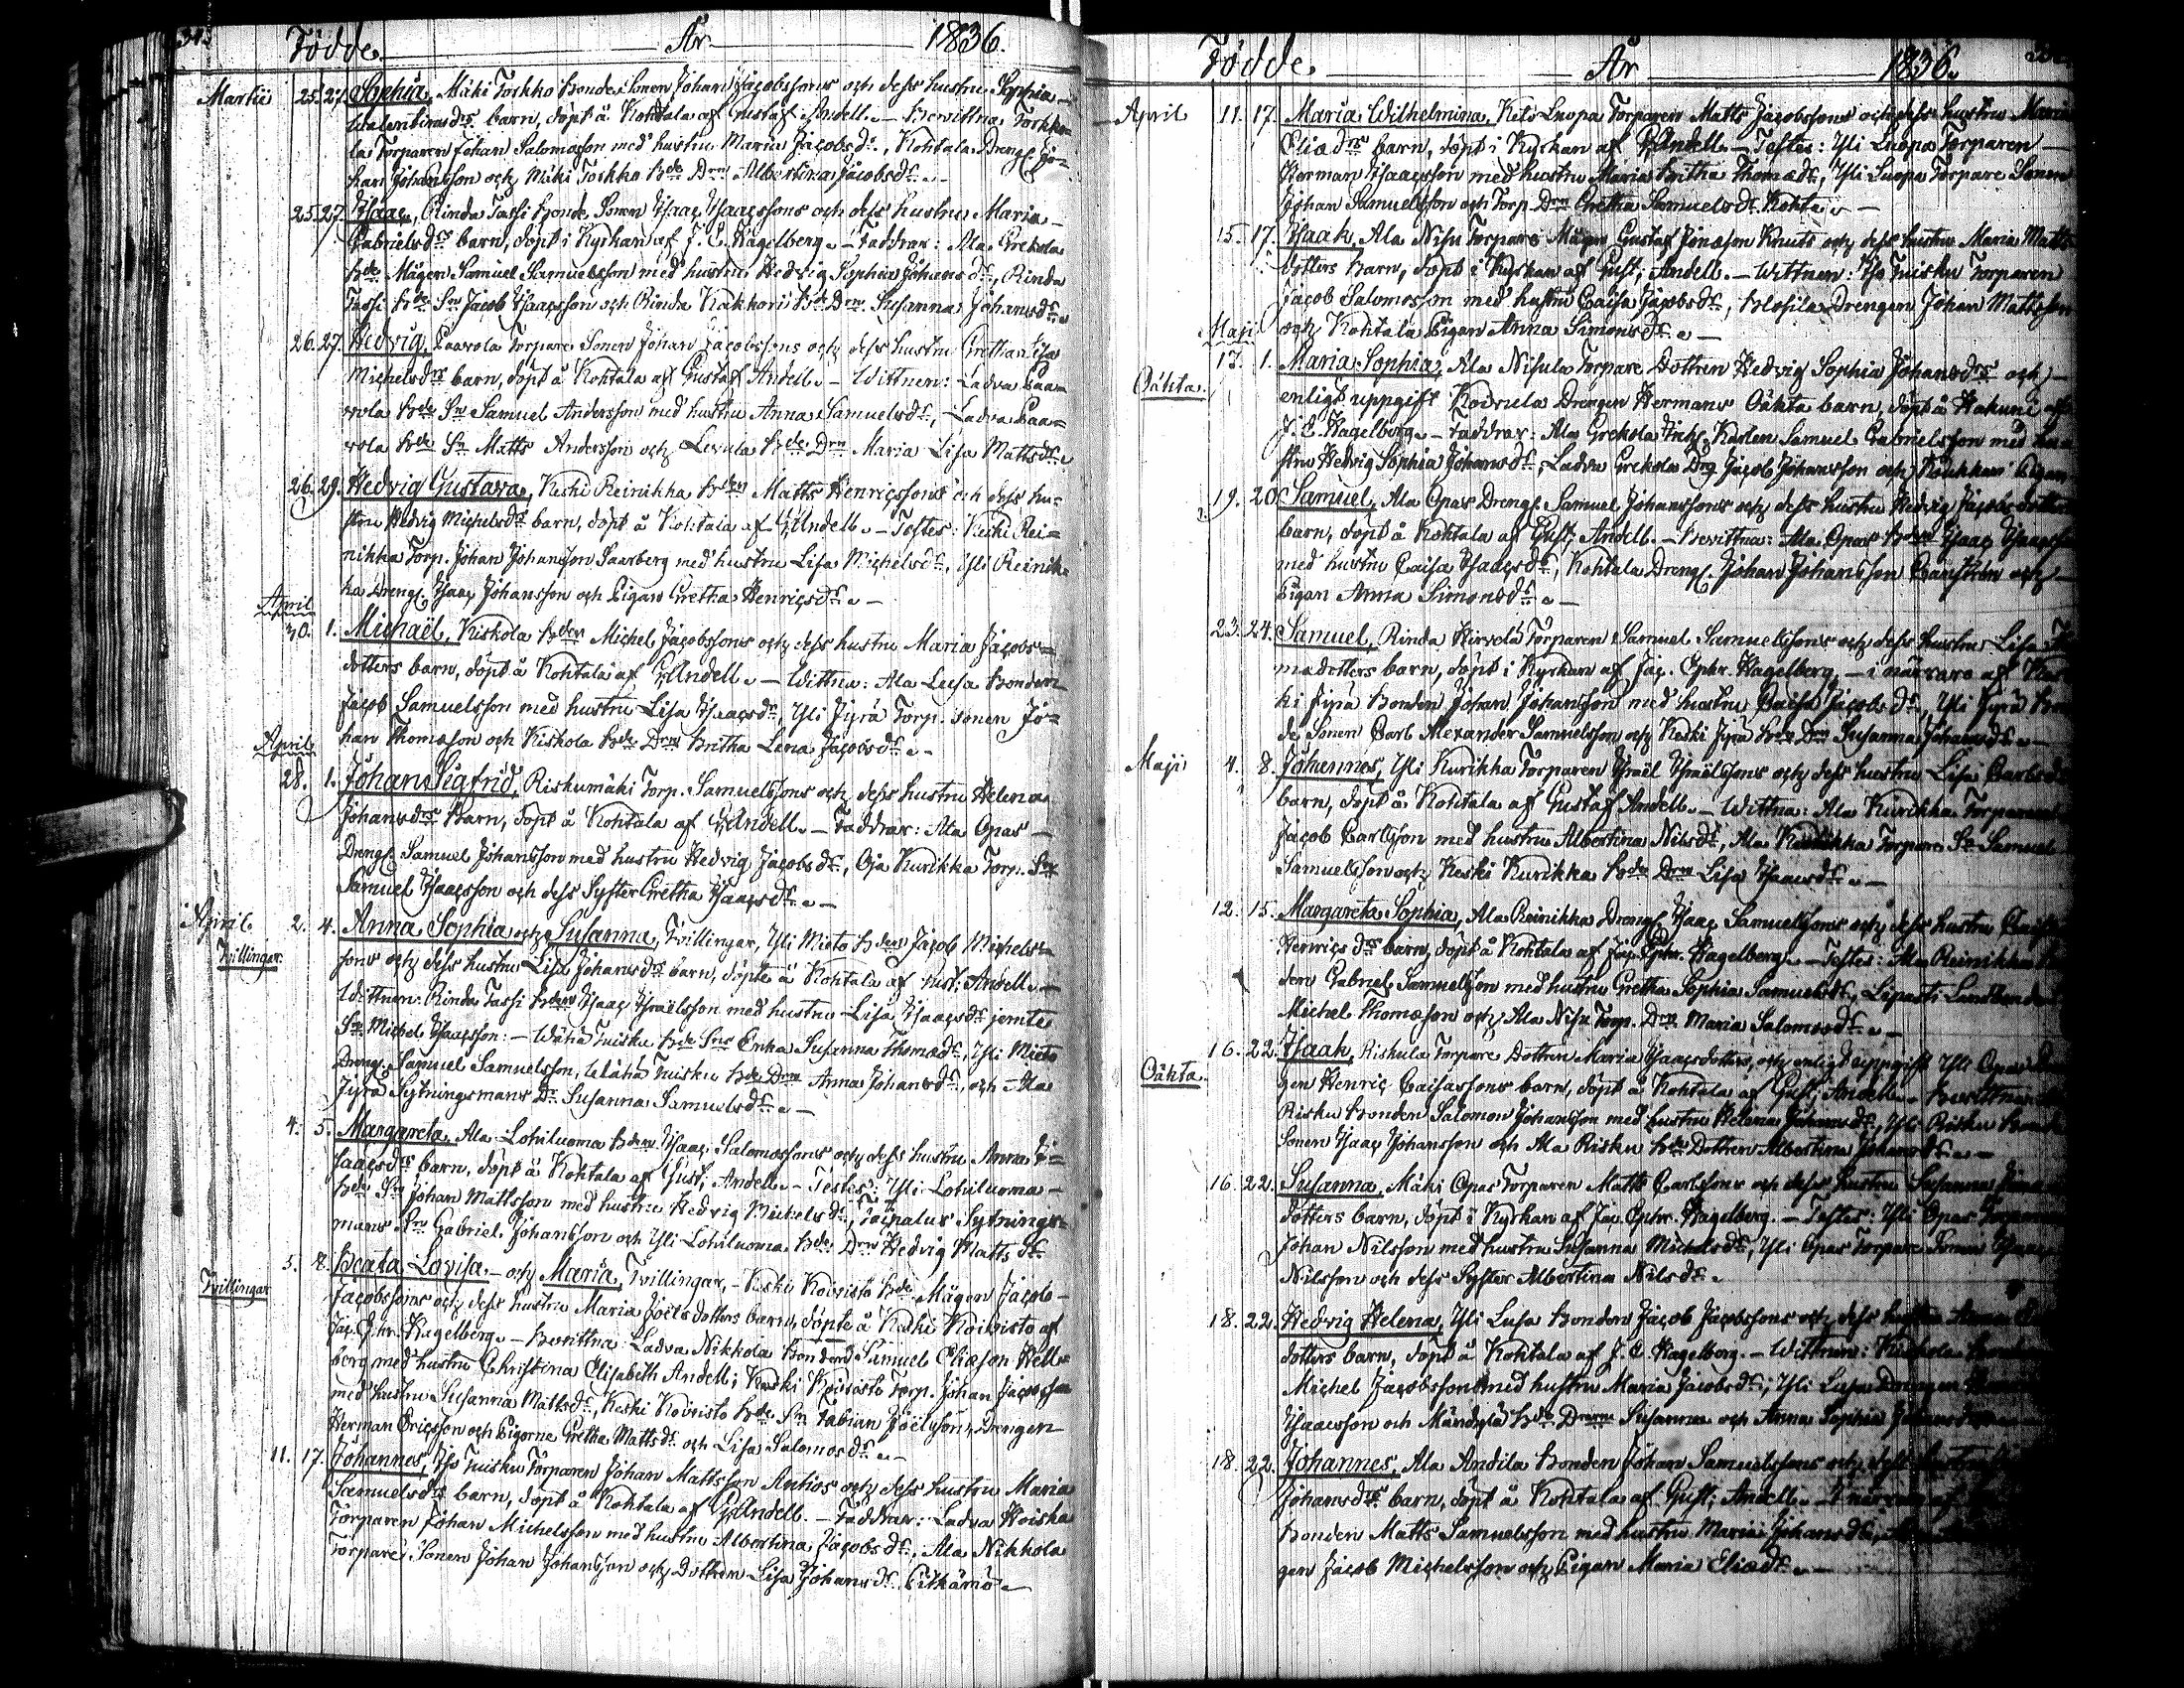 Födde. År 1836.
Martii 25. 27. Sophia, Mäki Torkko Bonde Sonen Johan Jacobssons och dess hustru Sophia
Walentinsdrs barn, döpt å Kohtala af Gustaf Andell. – Bevittna: Torkko
la Torparen Johan Salomosson med hustru Maria Jacobsdr, Kohtala Dreng. Jo=
han Johansson och Mäki Torkko Bde Drn Albertina Jacobsdr. –
25. 27. Isaac, Rinda Tassi Bonde Sonen Isaac Isaacssons och dess hustru Maria
Gabrielsdrs barn, döpt i Kyrkan af J. E. Hagelberg. – Faddrar: Ala Grekola
Bde Mågen Samuel Samuelsson med hustru Hedvig Sophia Johansdr, Rinda
Tassi Bde Sn Jacob Isaacsson och Rinda Kakkori Bde Drn Susanna Johansdr.
26. 27. Hedvig, Paavola Torpare Sonen Johan Jacobssons och dess hustru Gretha Lisa
Michelsdrs barn, döpt å Kohtala af Gustaf Andell. – Wittnen: Ladva Paa=
vola Bde Sn Samuel Andersson med hustru Anna Samuelsdr, Ladva Paa=
vola Bde Sn Matts Andersson och Levula Bde Drn Maria Lisa Mattsdr.
26. 29. Hedvig Gustava, Keski Reinikka Bden Matts Henricssons och dess hu=
stru Hedvig Michelsdrs barn, döpt å Kohtala af G. Andell. – Testes: Keski Rei=
nikka Torp. Johan Johansson Saarberg med hustru Lisa Michelsdr, Yli Reinik
ka Dreng. Isaac Johansson och Pigan Gretha Henricsdr. –
April
30. 1. Michaël, Kiskola Bden Michel Jacobssons och dess hustru Maria Jacobs=
dotters barn, döpt å Kohtala af G. Andell. – Wittna: Ala LuSa Bonden
Jacob Samuelsson med hustru Lisa Isaacsdr, Yli Jyrä Torp. Sonen Jo=
han Thomasson och Kiskola Bde Drn Britha Lena Jacobsdr. –
April
28. 1. Johan Sigfrid, Riskumäki Torp. Samuelssons och dess hustru Helena
Johansdrs Barn, döpt å Kohtala af G. Andell. – Faddrar: Ala Opas –
Dreng. Samuel Johansson med hustru Hedvig Jacobsdr, Oja Kurikka Torp. Sn
Samuel Isaacsson och dess Syster Gretha Isaacsdr. –
April 2. 4. Anna Sophia och Susanna, Tvillingar, Yli Mieto Bden Jacob Michels=
Tvillingar.
sons och dess hustru Lisa Johansdrs barn, döpte å Kohtala af Gust: Andell. –
Wittnen: Rinda Tassi Bden Isaac Israelsson med hustru Lisa Isaacsdr jemte
Sn Michel Isaacsson: – Wähä Tuisku Bde Sns Enka Susanna Thomædr, Yli Mieto
Dreng. Samuel Samuelsson, Wähä Tuisku Bde Drn Anna Johansdr, och Ala
Jyrä Sytningsmans Dr Susanna Samuelsdr. –
4. 5. Margareta, Ala Lohiluoma Bden Isaac Salomossons och dess hustru Anna I=
saacsdrs barn, döpt å Kohtala af Gust; Andell. – Testes: Yli Lohiluoma –
Bde Sn Johan Mattsson med hustru Hedvig Michelsdr, Taipalus Sytnings=
mans Sn Gabriel Johansson och Yli Lohiluoma Bde Drn Hedvig Mattsdr.
5. 8. Beata Lovisa – och Maria, Tvillingar, – Keski Koivisto Bde Mågen Jacob –
Tvillingar
Jacobssons och dess hustru Maria Joëlsdotters barn, döpte å Keski Koivisto af
Jac. Ephr. Hagelberg. – Bevittna: Ladva Nikkola Bonden Samuel Eliæson Hell=
berg med hustru Christina Elisabeth Andell; Keski Koivisto Torp. Johan Jacobsson
med hustru Susanna Mattsdr, Keski Koivisto Bde Sn Fabian Joëlsson, Drengen
Herman Ericsson och Pigorna Gretha Mattsdr och Lisa Salomosdr. –
11. 17. Johannes, Iso Tuisku Torparen Johan Mattsson Antios och dess hustru Maria
Samuelsdrs barn, döpt å Kohtala af G. Andell. – Faddrar: Ladva Hoiska
Torparen Johan Michelsson med hustru Albertina Jacobsdr, Ala Nikkola
Torpare Sonen Johan Johansson och Dottren Lisa Johansdr Pitkämö. –
Födde. År 1836.
April 11. 17. Maria Wilhelmina, Keto Luopa Torparen Matts Jacobssons och dess hustru Maria
Eliædrs barn, döpt i Kyrkan af G. Andell. – Testes: Yli Luopa Torparen –
Herman Isaacsson med hustru Maria Britha Thomædr, Yli Luopa Torpare Sonen
Johan Samuelsson och Torp. Drn Gretha Samuelsdr Kohta. –
15. 17. Isaak, Ala Nisu Torpare Mågen Gustaf Jonæson Knuts och dess hustru Maria Matts
dotters Barn, döpt i Kyrkan af Gust; Andell. – Wittnen: Iso Tuisku Torparen
Jacob Salomosson med hustru Caisa Jacobsdr, Drengen Johan Mattsson
och Kohtala Pigan Anna Simonsdr. –
Maji
13. 1. Maria Sophia, Ala Nisula Torpare Dottren Hedvig Sophia Johansdrs och –
Oäkta.
enligt uppgift Koivula Drengen Hermans Oäkta barn, döpt å Hakuni af
J. E. Hagelberg. – Faddrar: Ala Grekola Karlen Samuel Gabrielsson med hu
stru Hedvig Sophia Johansdr, Ladva Grekola Drg Jacob Johansson och Pigan
19. 20. Samuel, Ala Opas Dreng. Samuel Johanssons och dess hustru Hedvig Jacobsdotters
barn, döpt å Kohtala af Gust; Andell. – Bevittna: Ala Opas Bden Isaac Isaacsson
med hustru Caisa Isaacsdr, Kohtala Dreng. Johan Johansson och –
Pigan Anna Simonsdr. –
23. 24. Samuel, Rinda Hirvelä Torparen Samuel Samuelssons och dess hustru Lisa
mædotters barn, döpt i Kyrkan af Jac. Ephr. Hagelberg, – i närvaro af Kes
ki Jyrä Bonden Johan Johansson med hustru Caisa Jacobsdr, Yli Jyrä Bon
de Sonen Carl Alexander Samuelsson och Keski Jyrä Bde Drn Susanna Johansdr. –
Maji 4. 8. Johannes, Yli Kurikka Torparen Israël Israëlssons och dess hustru Lisa Carlsdrs
barn, döpt å Kohtala af Gustaf Andell. – Wittna: Ala Kurikka Torparen
Jacob Carlsson med hustru Albertina Nilsdr, Ala Kurikka Torpare Sn Samuel
Samuelsson och Keski Kurikka Bde Drn Lisa Isaacsdr. –
12. 15. Margareta Sophia, Ala Reinikka Dreng. Isaac Samuelssons och dess hustru Caisa
Henricsdrs barn, döpt å Kohtala af Jac. Ephr. Hagelberg. – Testes: Ala Reinikka
den Gabriel Samuelsson med hustru Gretha Sophia Samuelsdr,
Michel Thomæson och Ala Nisu Torp. Drn Maria Salomosdr. –
16. 22. Isaak, Riskula Torpare Dottren Maria Isaacsdotters, och enligt uppgift Yli Opas
Oäkta.
gen Henric Caisassons barn, döpt å Kohtala af Gust; Andell. – Bevittna:
Risku Bonden Salomon Johansson med hustru Helena Johansdr, Yli Risku Bonde
Sonen Isaac Johansson och Ala Risku Bde Dottren Albertina Johansdr. –
16. 22. Susanna, Mäki Opas Torparen Matts Carlssons och dess hustru Susanna
dotters barn, döpt i Kyrkan af Jac. Ephr. Hagelberg. – Testes: Yli Opas Torparen
Johan Nilsson med hustru Susanna Michelsdr, Yli Opas Torpare Sonen Isaac
Nilsson och dess Syster Albertina Nilsdr.
18. 22. Hedvig Helena, Yli Lusa Bonden Jacob Jacobssons och dess hustru Anna
dotters barn, döpt å Kohtala af J. E. Hagelberg. – Wittnen: Kiskola Bonden
Michel Jacobsson med hustru Maria Jacobsdr, Yli Lusa Drengen
Isaacsson och Mändylä Bde Drarna Susanna och Anna Sophia
18. 22. Johannes, Ala Andila Bonden Johan Samuelssons och dess hustru
Johansdrs barn, döpt å Kohtala af Gust; Andell. – I närvaro af
Bonden Matts Samuelsson med hustru Maria Johansdr,
gen Jacob Michelsson och Pigan Maria Eliædr. –